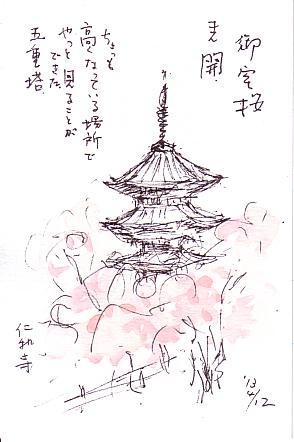 御室桜
満開.
ちょっと
高くなっている場所で
やっと見ることが
できた
五重塔.
仁和寺
'13
4/12